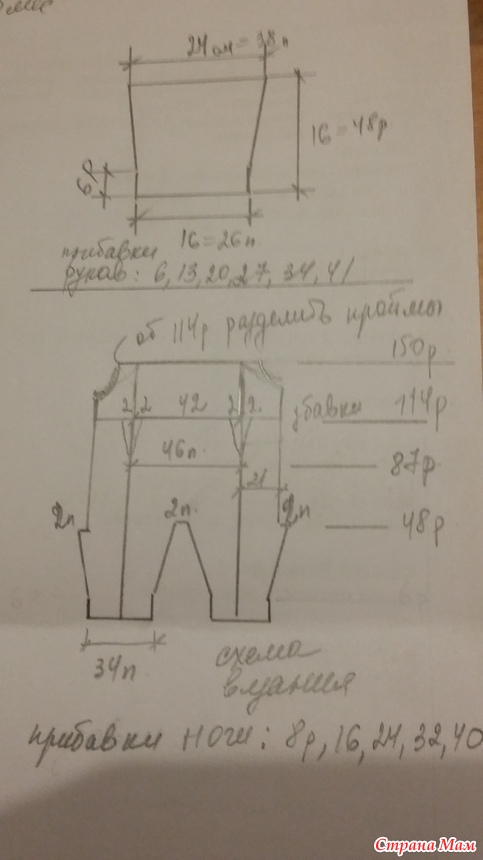 24 см = 38 п
16 = 48р
6р
16 = 26 п.
прибавки
рукав: 6, 13, 20, 27, 34, 41
от 114р разделить проймы
150р.
2 2 42 2 2
убавки 114р
46п.
87р
21
2п 2п. 2п
48р
34п
схема
вязания
прибавки ноги: 8р, 16, 24, 32, 40
Страна Мам